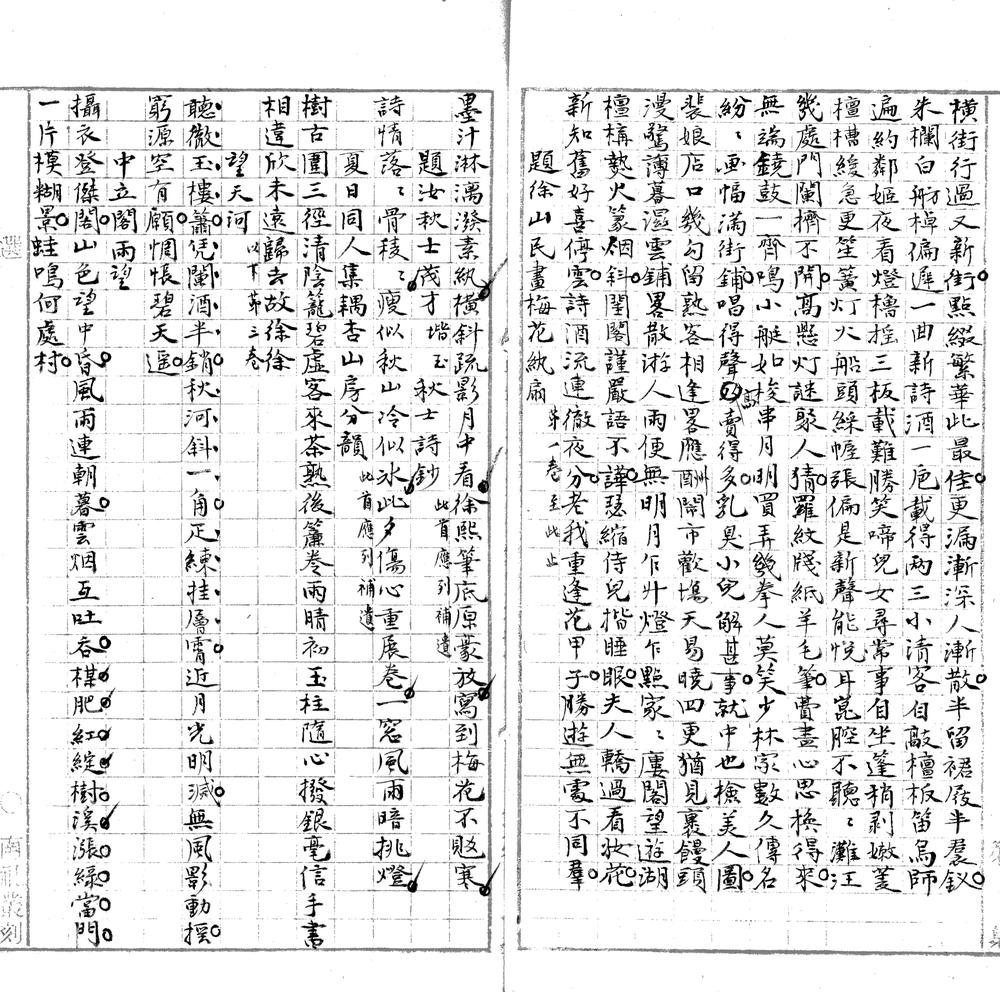 橫街行過又新街點綴繁華此最佳更漏漸深人漸散半留裙屐半裙釵
朱欄白舫棹偏遲一曲新詩酒一卮載得兩三小清客自敲檀板笛烏師
遍約鄰姬夜看燈櫓搖三板載難勝笑啼兒女尋常事自坐篷梢剥嫩菱
檀槽緩急更笙簧灯火船頭綵幄張偏是新聲能悅耳崑腔不聽聽灘汪
幾處門闌擠不開高懸灯謎聚人猜羅紋牋紙羊毛筆費盡心思換得來
無端鐃鼓一齊鳴小艇如梭串月明買弄幾拳人莫笑少林宗數久傳名
紛紛画幅滿街鋪唱得聲高賣得多乳臭小兒解甚事就中也檢美人圖
裴娘店口幾勾留熟客相逢畧應酬鬧市歡塲天易曉四更猶見裹饅頭
漫驚薄暮濕雲鋪畧散游人雨便無明月乍升燈乍點家家廔閣望遊湖
檀構熱火篆烟斜閨閣謹嚴語不譁瑟縮侍兒揩睡眼夫人轎過看妝花
新知舊好喜停雲詩酒流連徹夜分老我重逢花甲子勝遊無處不同羣
題徐山民畫梅花紈扇 第一卷至此止
墨汁淋漓潑素紈橫斜疏影月中看徐熙筆底原豪放寫到梅花不貶寒
題汝秋士茂才堦玉秋士詩鈔 此首應列補遺
詩情落落骨稜稜瘦似秋山冷似冰此夕傷心重展卷一窗風雨暗挑燈
夏日同人集耦杏山房分韻 此首應列補遺
樹古圍三徑清陰籠碧虛客來茶熟後簾卷雨晴初玉柱隨心撥銀毫信手書
相違欣未遠歸去故徐徐
望天河 以下第三卷
聽徹玉樓簫凭闌酒半銷秋河斜一角疋練挂層霄近月光明滅無風影動搖
窮源空有願惆悵碧天遥
中立閣雨望
攝衣登傑閣山色望中昏風雨連朝暮雲烟互吐吞楳肥紅綻樹溪漲綠當門
一片模糊景蛙鳴何處村
南社叢刻